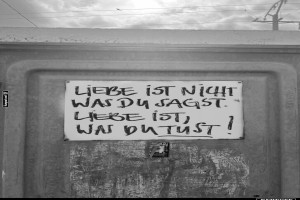 LIEBE IST NICHT
WAS DU SAGST.
LIEBE IST,
WAS DU TUST!